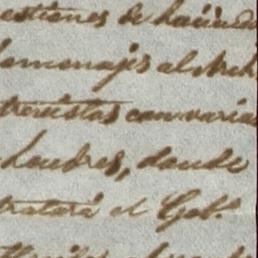 estiones de hacienda
homenajes al Arch
trevistas con varias
Londres, donde
tratará el Gob.º